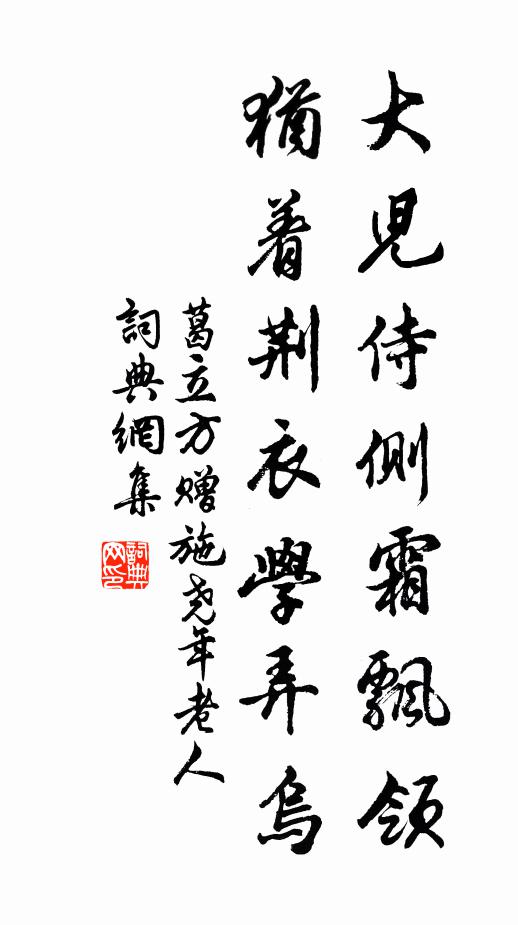 大児侍側霜飄領
猶着荆衣學弄烏
葛立方贈施尧年老人
詞典網集
詞典網印